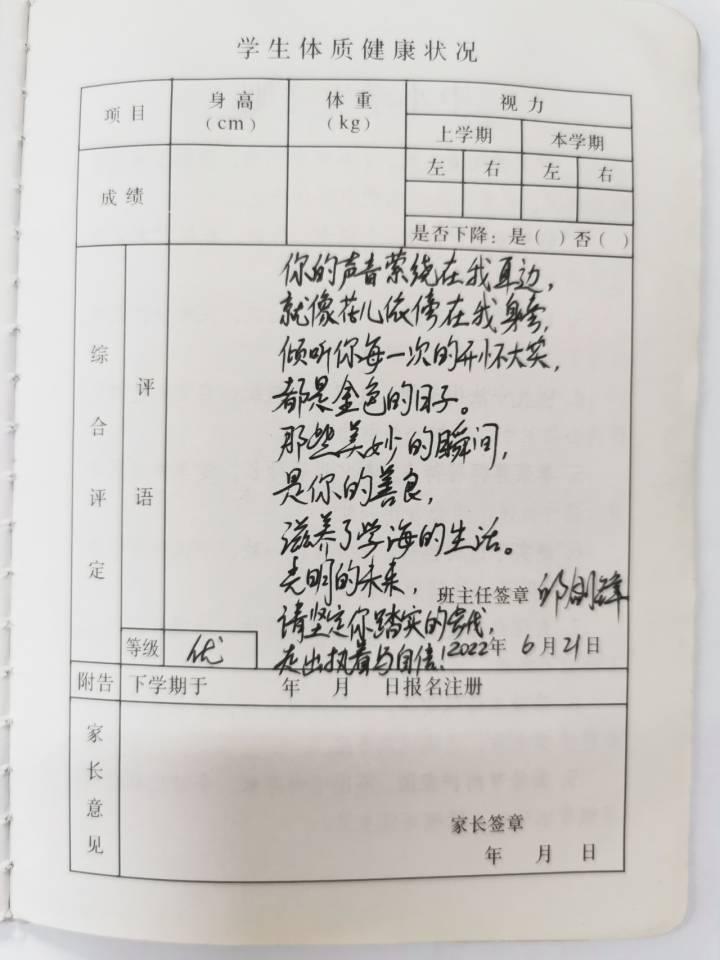 学生体质健康状况
项目 身高(cm) 体重(kg) 视力
上学期 本学期
左 右 左 右
成绩
是否下降：是（ ）否（ ）
综合评定
评语
你的声音萦绕在我耳边，
就像花儿依傍在我身旁，
倾听你每一次的开怀大笑，
都是金色的日子。
那些美妙的瞬间，
是你的善良，
滋养了学海的生活。
光明的未来，
班主任签章
请坚定你踏实的步伐，
走出执着与自信！
2022年 6月21日
等级 优
附告 下学期于 年 月 日报名注册
家长意见
家长签章
年 月 日